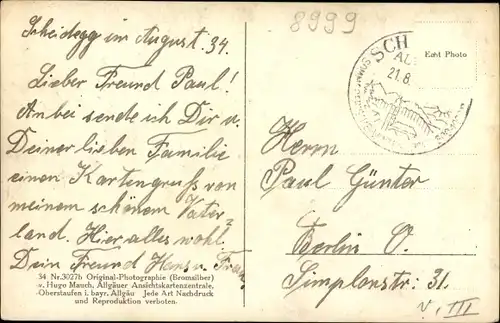 8999
Scheidegg im August. 34.
Lieber Freund Paul!
Anbei sende ich Dir u.
Deiner lieben Familie
einen Kartengruss von
meinem schönem Vater=
land. Hier alles wohl.
Dein Freund Hans u.
34 Nr.3027b Original-Photographie (Bromsilber)
v. Hugo Mauch, Allgäuer Ansichtskartenzentrale,
Oberstaufen i. bayr. Allgäu Jede Art Nachdruck
und Reproduktion verboten.
SCH
AL
21.8.
Echt Photo
Herrn
Paul Günter
Berlin O.
Simplonstr: 31.
v. III